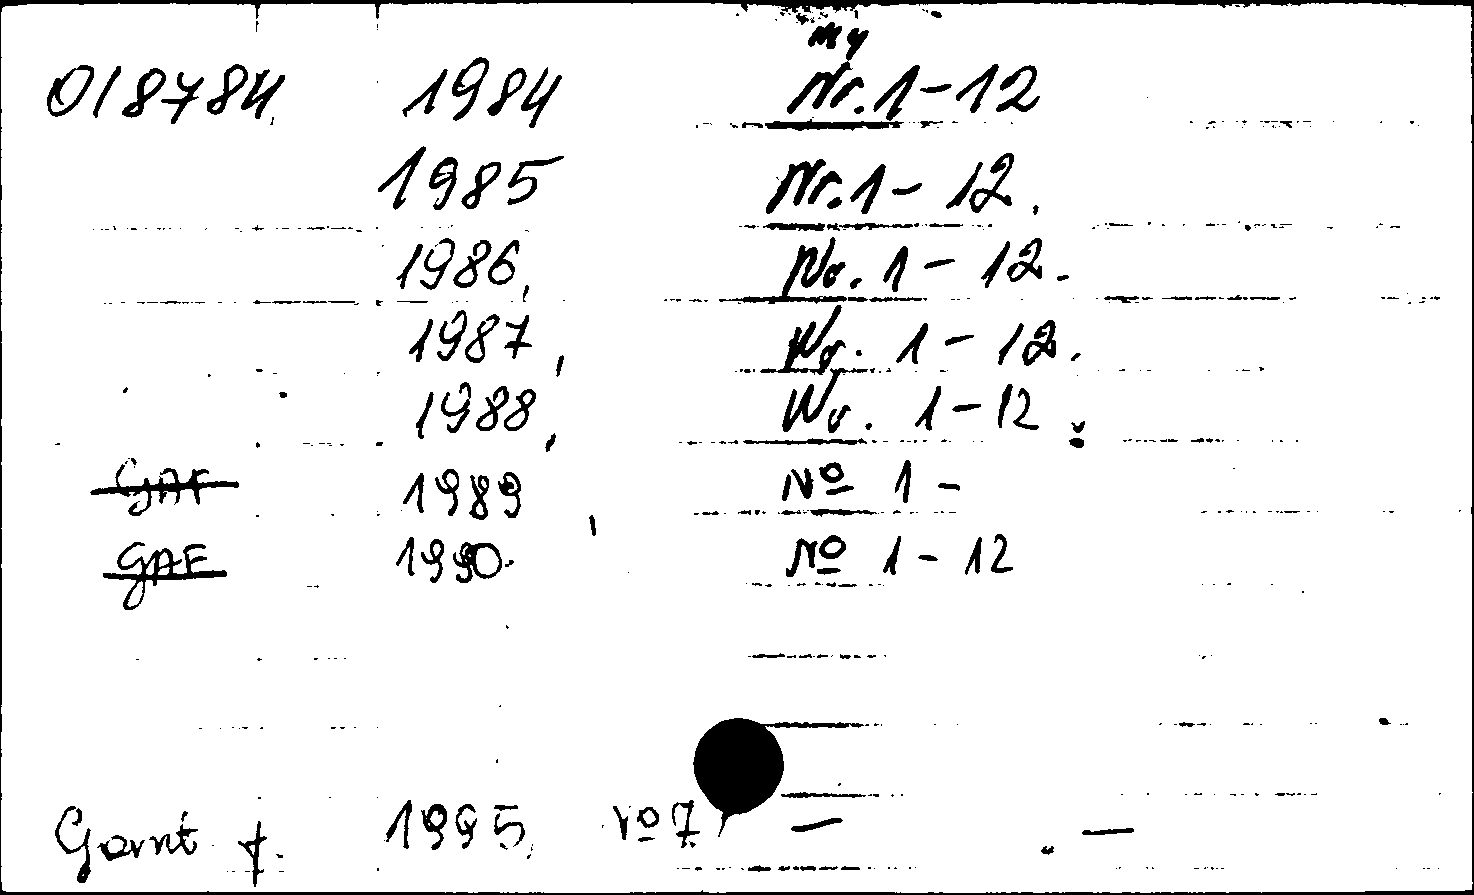 018784 1984 Nr. 1-12
1985 Nr. 1- 12.
1986, Nr. 1- 12.
1987, Nr. 1- 12.
1988, Nr. 1-12.
GAF 1989, Nº 1-
GAF 1990. Nº 1-12
1995, Nº 7, — —